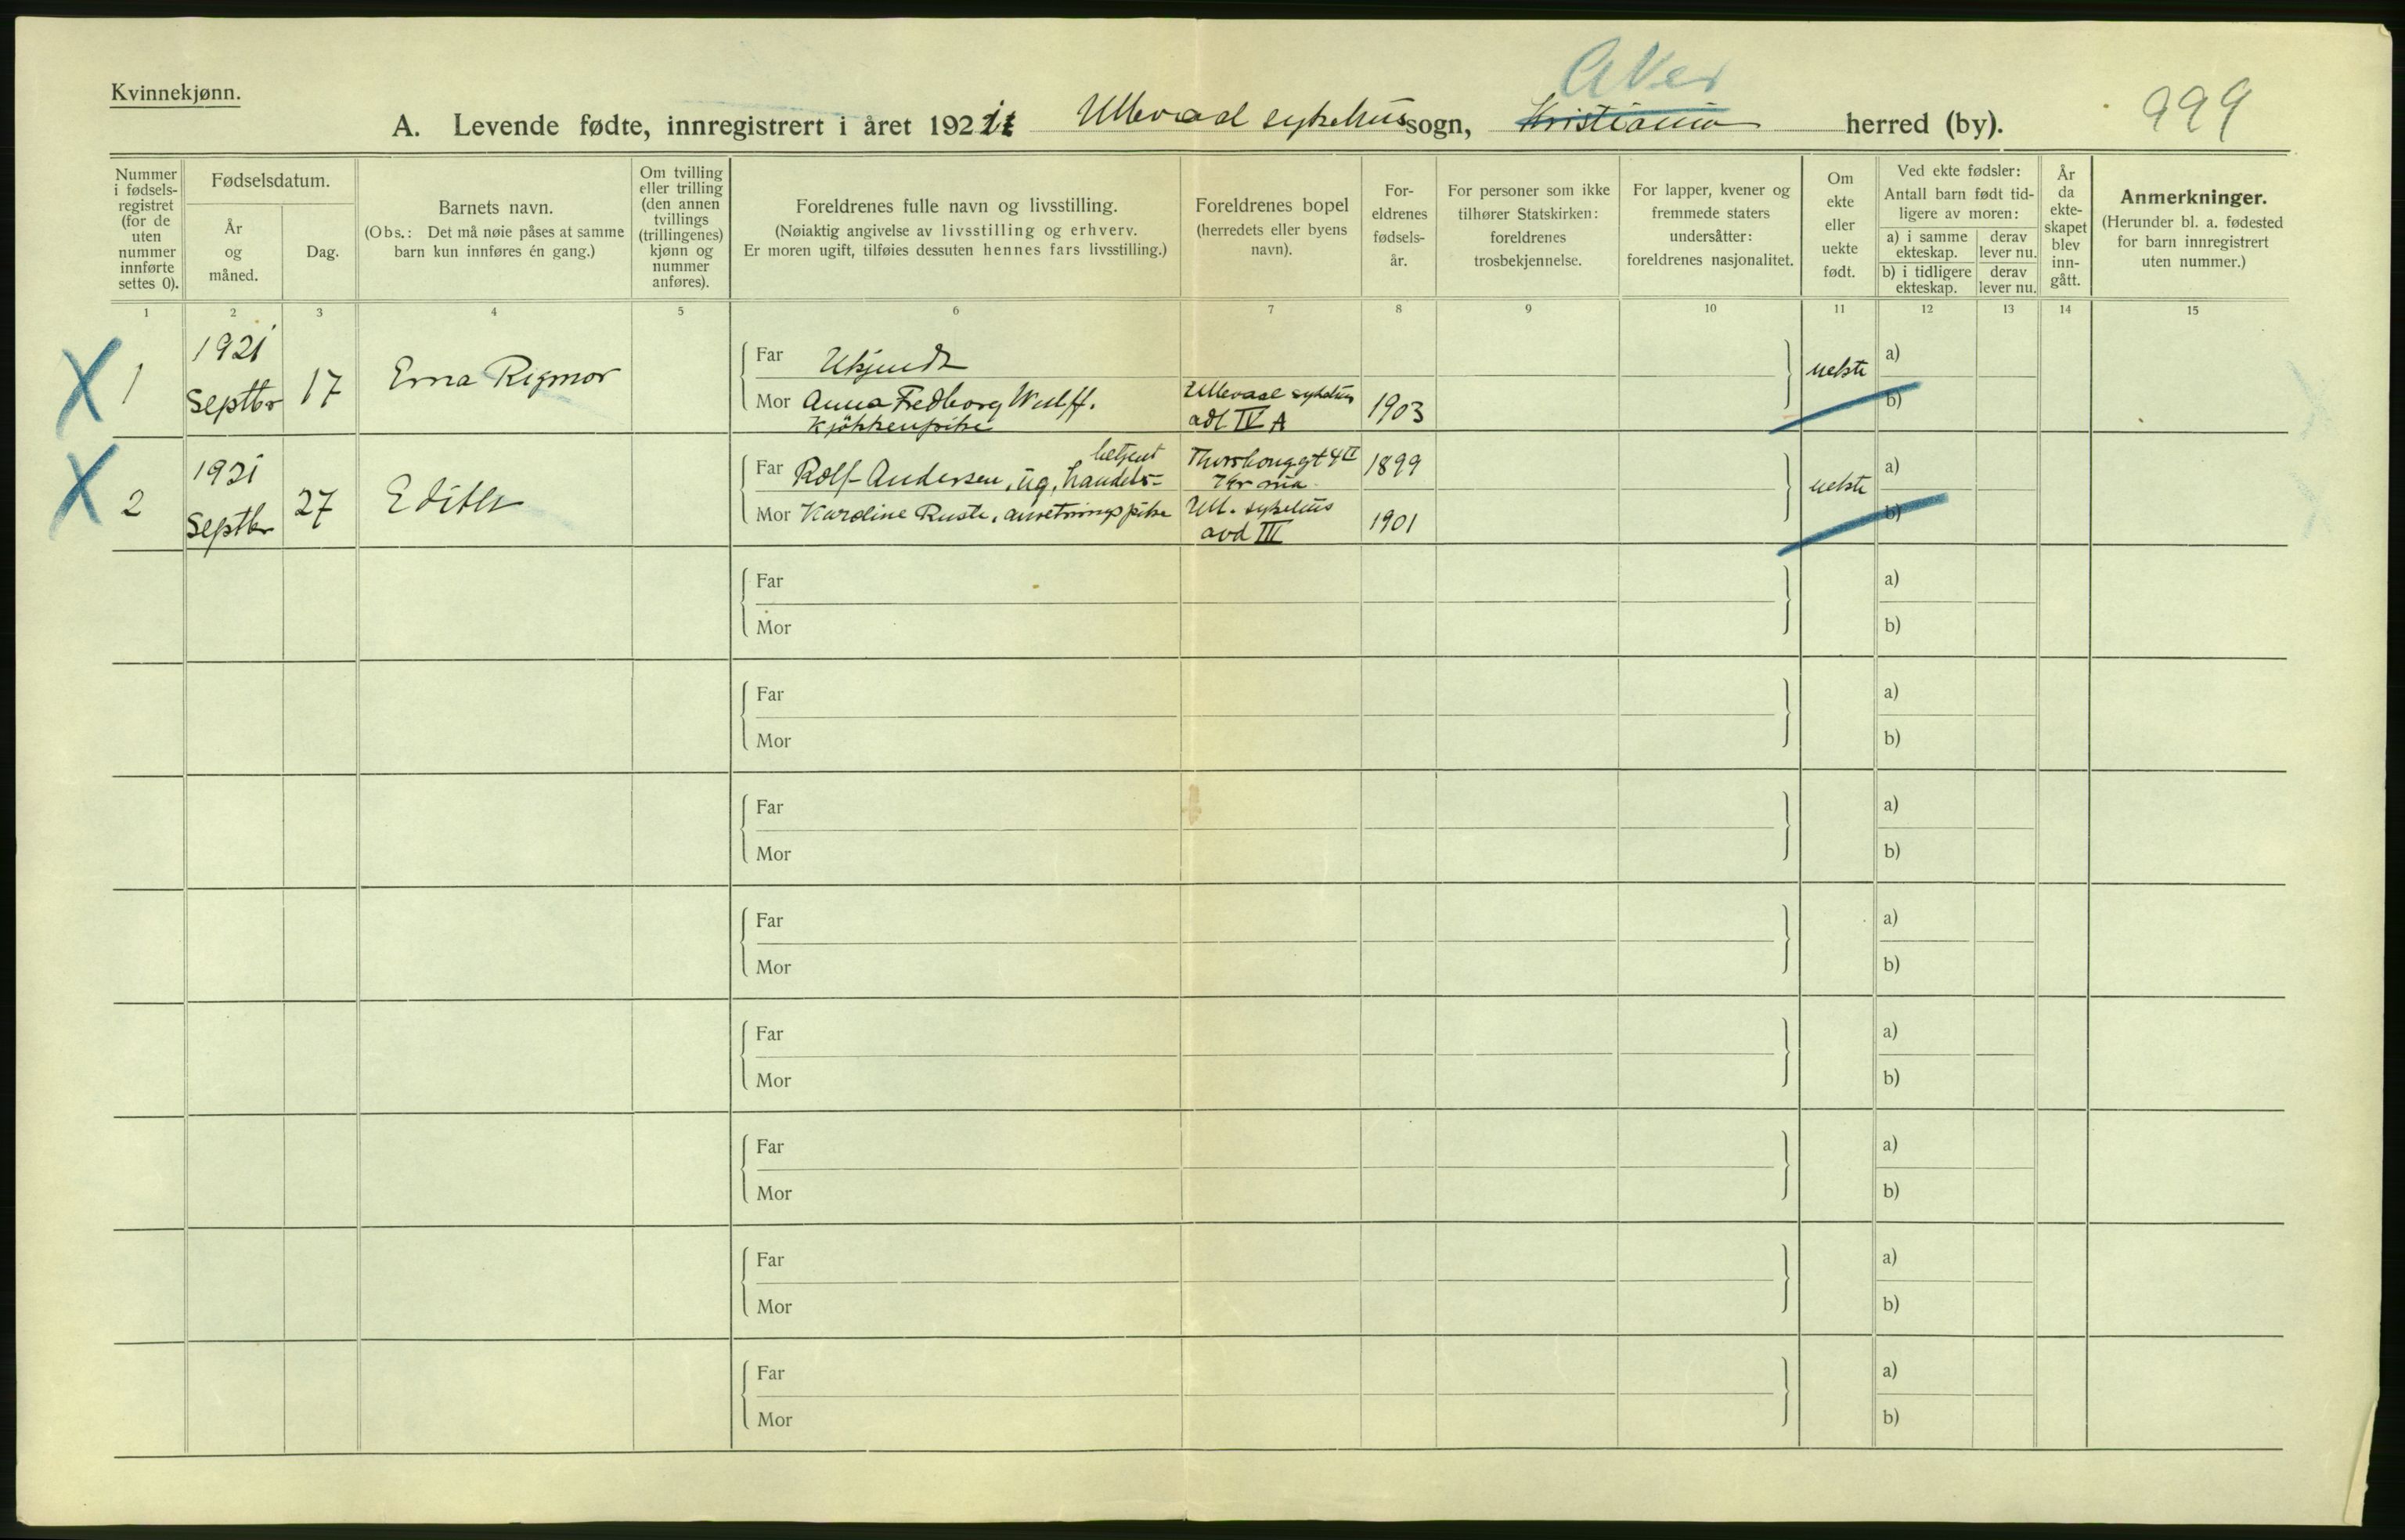 Kvinnekjønn.
Aker
999
A. Levende fødte, innregistrert i året 1921 Ullevaal sykehus sogn, Kristiania herred (by).
Nummer i fødsels-registret (for de uten nummer innførte settes 0).
Fødselsdatum.
År og måned.
Dag.
Barnets navn.
(Obs.: Det må nøie påses at samme barn kun innføres én gang.)
Om tvilling eller trilling (den annen tvillings (trillingenes) kjønn og nummer anføres).
Foreldrenes fulle navn og livsstilling.
(Nøiaktig angivelse av livsstilling og erhverv.
Er moren ugift, tilføies dessuten hennes fars livsstilling.)
Foreldrenes bopel (herredets eller byens navn).
For-eldrenes fødsels-år.
For personer som ikke tilhører Statskirken: foreldrenes trosbekjennelse.
For lapper, kvener og fremmede staters undersåtter: foreldrenes nasjonalitet.
Om ekte eller uekte født.
Ved ekte fødsler:
Antall barn født tid-ligere av moren:
a) i samme ekteskap.
derav lever nu.
b) i tidligere ekteskap.
derav lever nu.
År da ekte-skapet blev inn-gått.
Anmerkninger.
(Herunder bl. a. fødested for barn innregistrert uten nummer.)
1 2 3 4 5 6 7 8 9 10 11 12 13 14 15
X 1 1921 Septbr 17 Erna Rigmor
Far Ukjendt
uekte a)
Mor Anna Fredborg Wulff. Ullevaal sykehus 1903 b)
Kjøkkenpike adl IV A
X 2 1921 Septbr 27 Edith
betjent
Far Rolf Andersen, ug, handels= Thorshauggt 4 II 1899
Kr ania
uekte a)
Mor Karoline Ruste, anretningspike Ull. sykehus 1901 b)
avd III
Far a)
Mor b)
Far a)
Mor b)
Far a)
Mor b)
Far a)
Mor b)
Far a)
Mor b)
Far a)
Mor b)
Far a)
Mor b)
Far a)
Mor b)